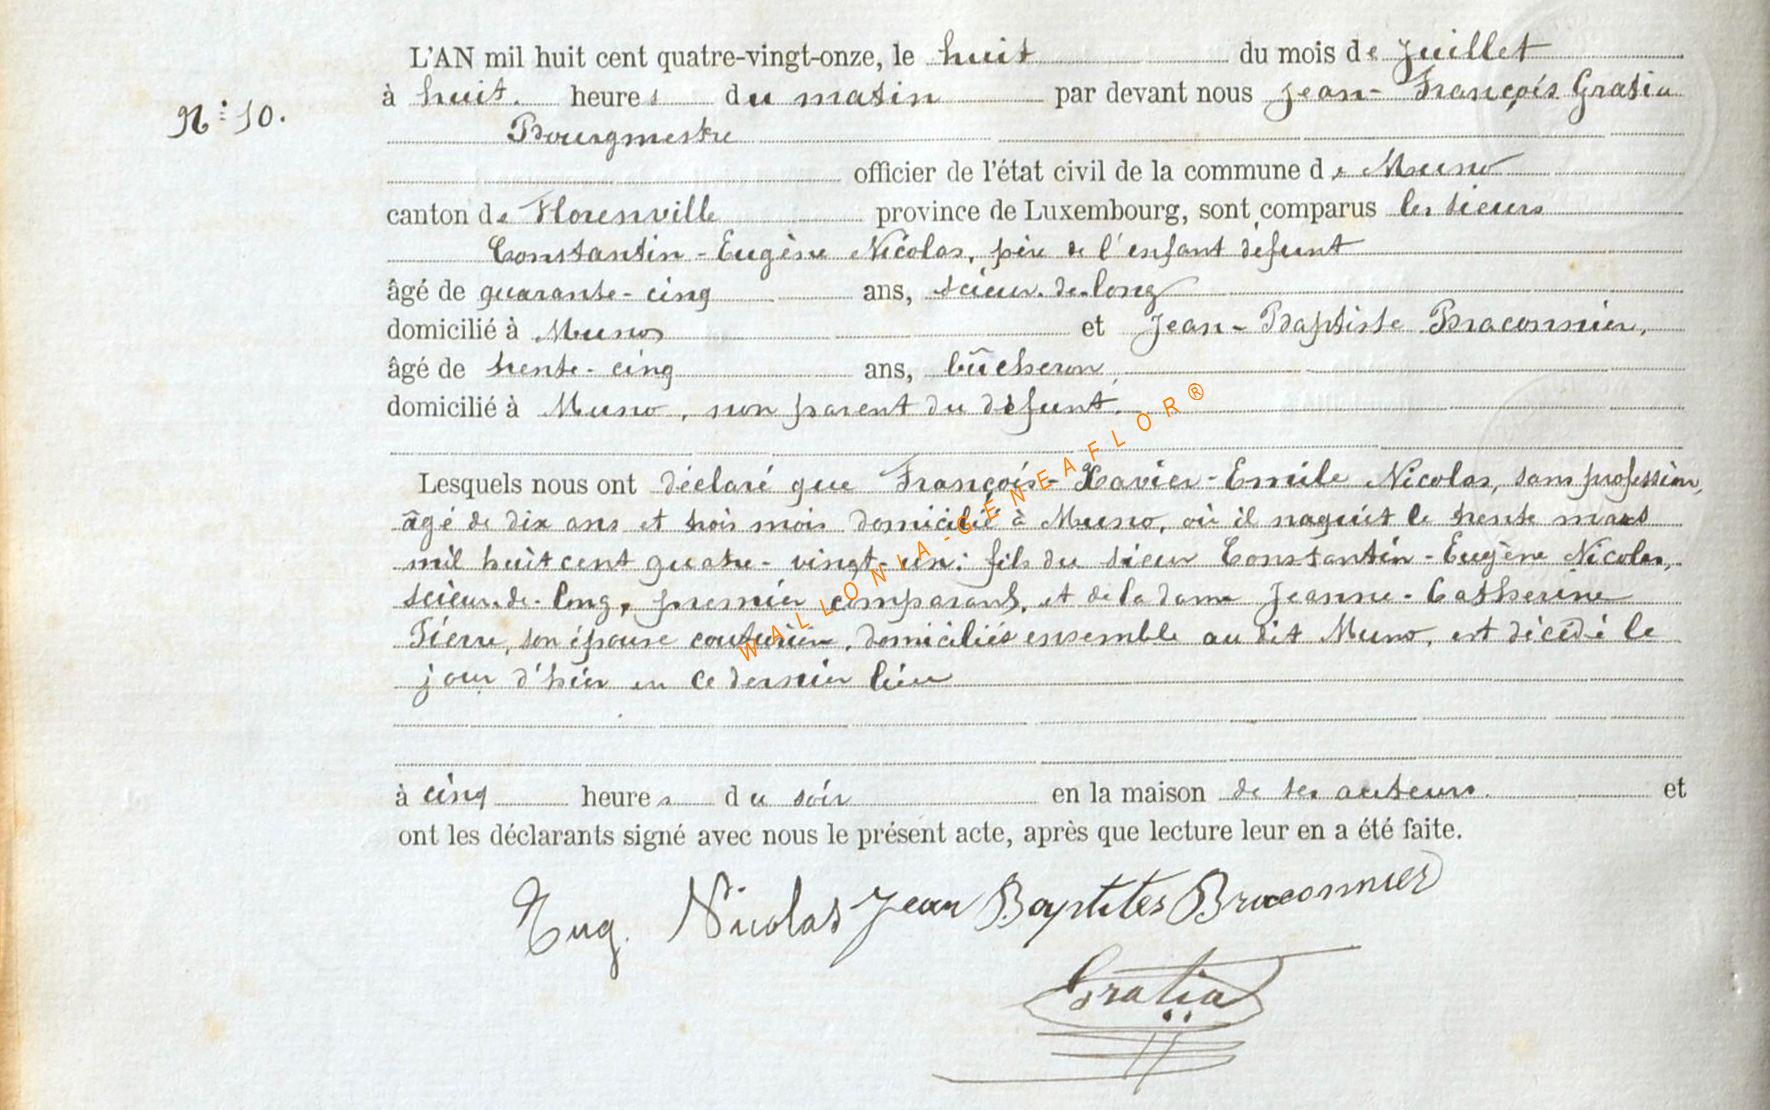 L'AN mil huit cent quatre-vingt-onze, le huit du mois de Juillet
N° 10.
à huit. heures du matin par devant nous Jean-François Gratia
Bourgmestre
officier de l'état civil de la commune de Muno
canton de Florenville province de Luxembourg, sont comparus les sieurs
Constantin-Eugène Nicolas, père de l'enfant défunt
âgé de quarante-cinq ans, scieur-de-long
domicilié à Muno et Jean-Baptiste Braconnier,
âgé de trente-cinq ans, bûcheron,
domicilié à Muno, non parent du défunt.
Lesquels nous ont déclaré que François-Xavier-Emile Nicolas, sans profession,
âgé de dix ans et trois mois domicilié à Muno, où il naquit le trente mars
mil huit cent quatre-vingt-un: fils du sieur Constantin-Eugène Nicolas,
scieur-de-long, premier comparant, et de la dame Jeanne-Catherine
Pierre, son épouse couturière, domiciliés ensemble au dit Muno, est décédé le
jour d'hier en ce dernier lieu
à cinq heures du soir en la maison de ses auteurs. et
ont les déclarants signé avec nous le présent acte, après que lecture leur en a été faite.
Eug. Nicolas Jean Baptites Braconnier
Gratia
WALLONIA-GENEAFLOR®